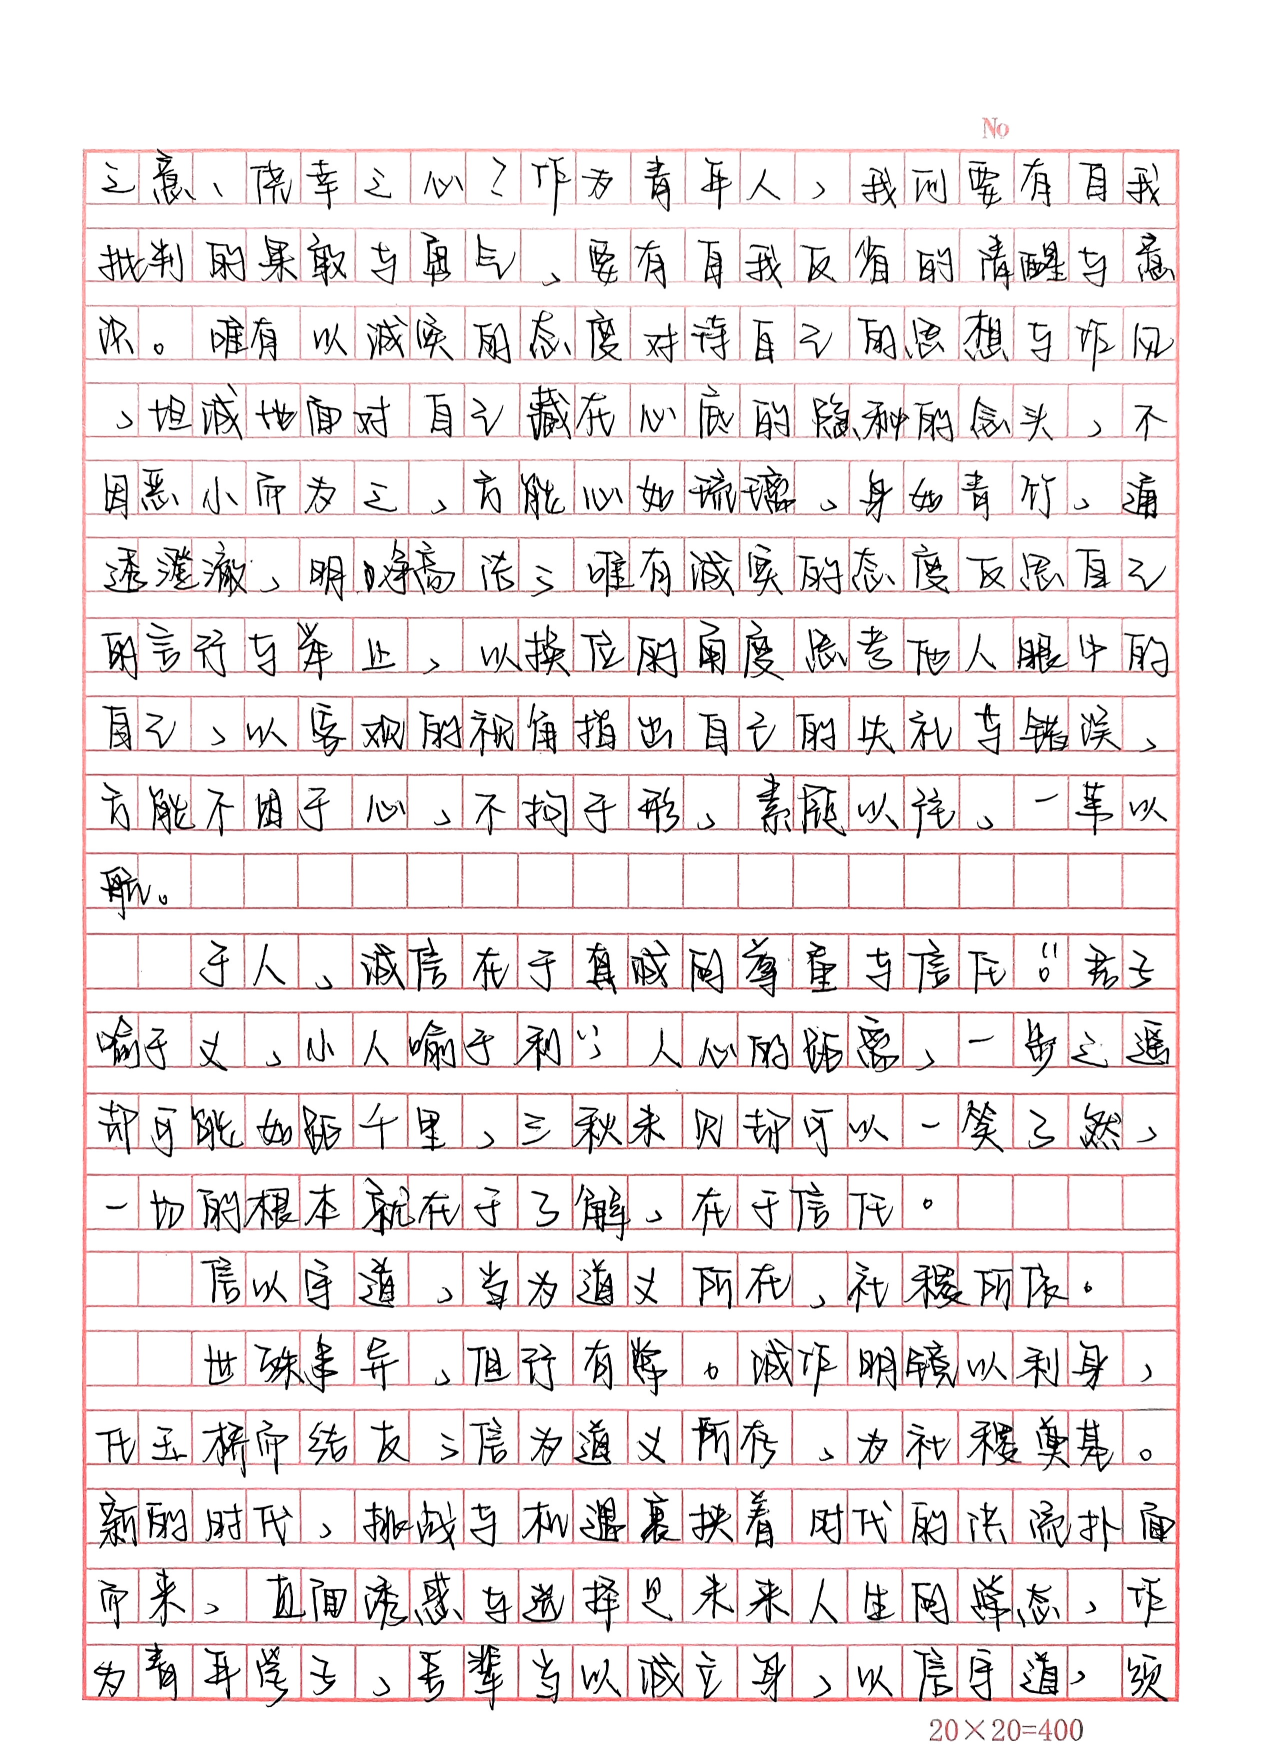 No
之意、侥幸之心？作为青年人，我们要有自我
批判的果敢与勇气，要有自我反省的清醒与意
识。唯有以诚实的态度对待自己的思想与作风
，坦诚地面对自己藏在心底的隐秘的念头，不
因恶小而为之，方能心如琉璃，身如青竹，通
透澄澈，明净高洁；唯有诚实的态度反思自己
的言行与举止，以换位的角度思考他人眼中的
自己，以客观的视角指出自己的失礼与错误，
方能不困于心，不拘于形，素履以往，一苇以
航。
于人，诚信在于真诚的尊重与信任。“君子
喻于义，小人喻于利”，人心的距离，一步之遥
却可能如距千里，三秋未见却可以一笑了然，
一切的根本就在于了解，在于信任。
信以守道，当为道义所在，社稷所依。
世殊事异，但行有常。诚作明镜以利身，
代玉桥而结友；信为道义所存，为社稷奠基。
新的时代，挑战与机遇裹挟着时代的洪流扑面
而来，直面诱惑与选择是未来人生的常态，作
为青年学子，吾辈当以诚立身，以信守道，须
20×20=400